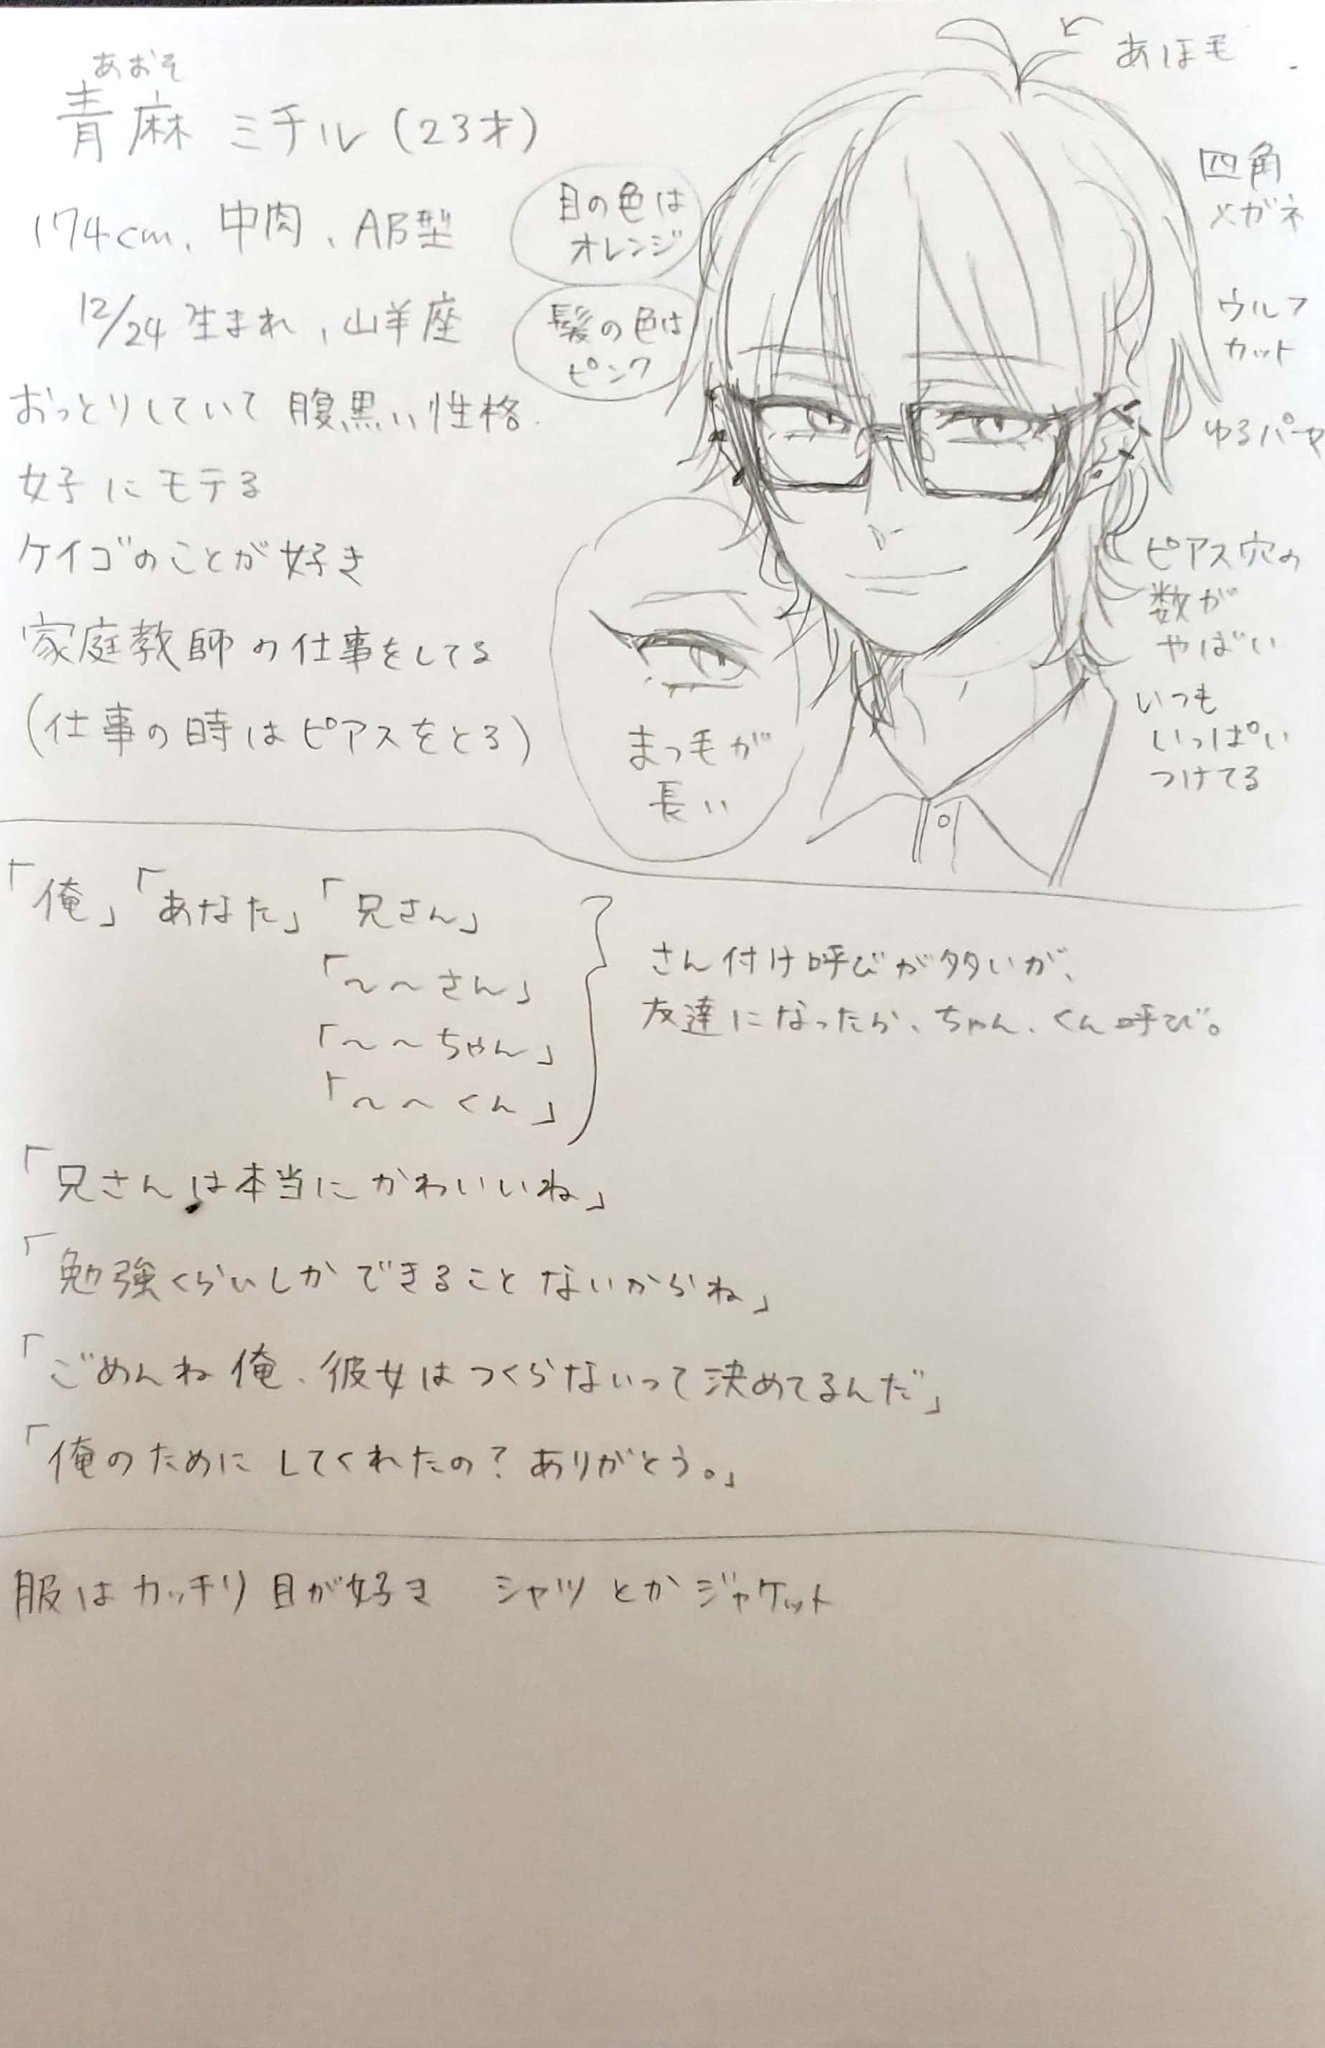 あおそ
青麻 ミチル(23才)
174cm、中肉、AB型
12/24 生まれ、山羊座
おっとりしていて 腹黒い性格.
女子にモテる
ケイゴのことが好き
家庭教師の仕事をしてる
(仕事の時はピアスをとる)
目の色は
オレンジ
髪の色は
ピンク
あほ毛
四角
メガネ
ウルフ
カット
ゆるパーマ
ピアス穴の
数が
やばい
いつも
いっぱい
つけてる
まつ毛が
長い
「俺」「あなた」「兄さん」
「〜〜さん」
「〜〜ちゃん」
「〜〜くん」
さん付け呼びが多いが、
友達になったら、ちゃん、くん呼び。
「兄さんは本当にかわいいね」
「勉強くらいしかできることないからね」
「ごめんね俺、彼女はつくらないって決めてるんだ」
「俺のためにしてくれたの?ありがとう。」
服はカッチリ目が好き シャツとかジャケット